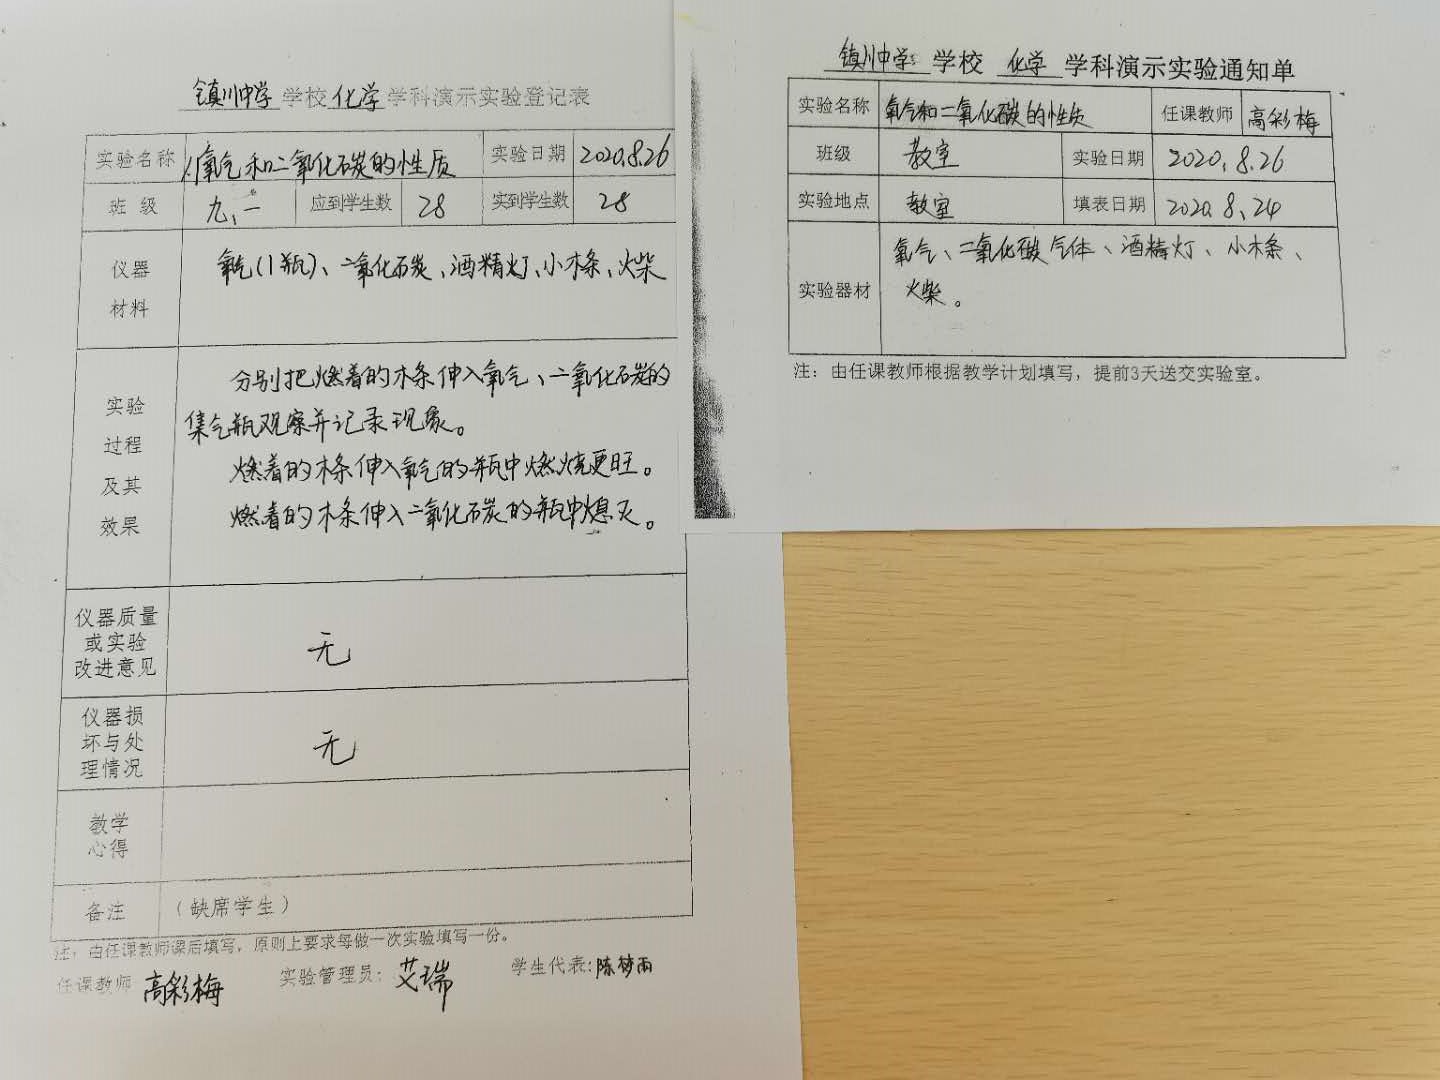 镇川中学 学校 化学 学科演示实验登记表
实验名称 氧气和二氧化碳的性质 实验日期 2020.8.26
班级 九、一 应到学生数 28 实到学生数 28
仪器
材料
氧气(1瓶)、二氧化石炭、酒精灯、小木条、火柴
实验
过程
及其
效果
分别把燃着的木条伸入氧气、二氧化石炭的
集气瓶观察并记录现象。
燃着的木条伸入氧气的瓶中燃烧更旺。
燃着的木条伸入二氧化石炭的瓶中熄灭。
仪器质量
或实验
改进意见
无
仪器损
坏与处
理情况
无
教学
心得
备注 (缺席学生)
注：由任课教师课后填写，原则上要求每做一次实验填写一份。
任课教师 高彩梅 实验管理员：艾瑞 学生代表：陈梦雨
镇川中学 学校 化学 学科演示实验通知单
实验名称 氧气和二氧化碳的性质 任课教师 高彩梅
班级 教室 实验日期 2020.8.26
实验地点 教室 填表日期 2020.8.24
实验器材
氧气、二氧化碳气体、酒精灯、小木条、
火柴。
注：由任课教师根据教学计划填写，提前3天送交实验室。